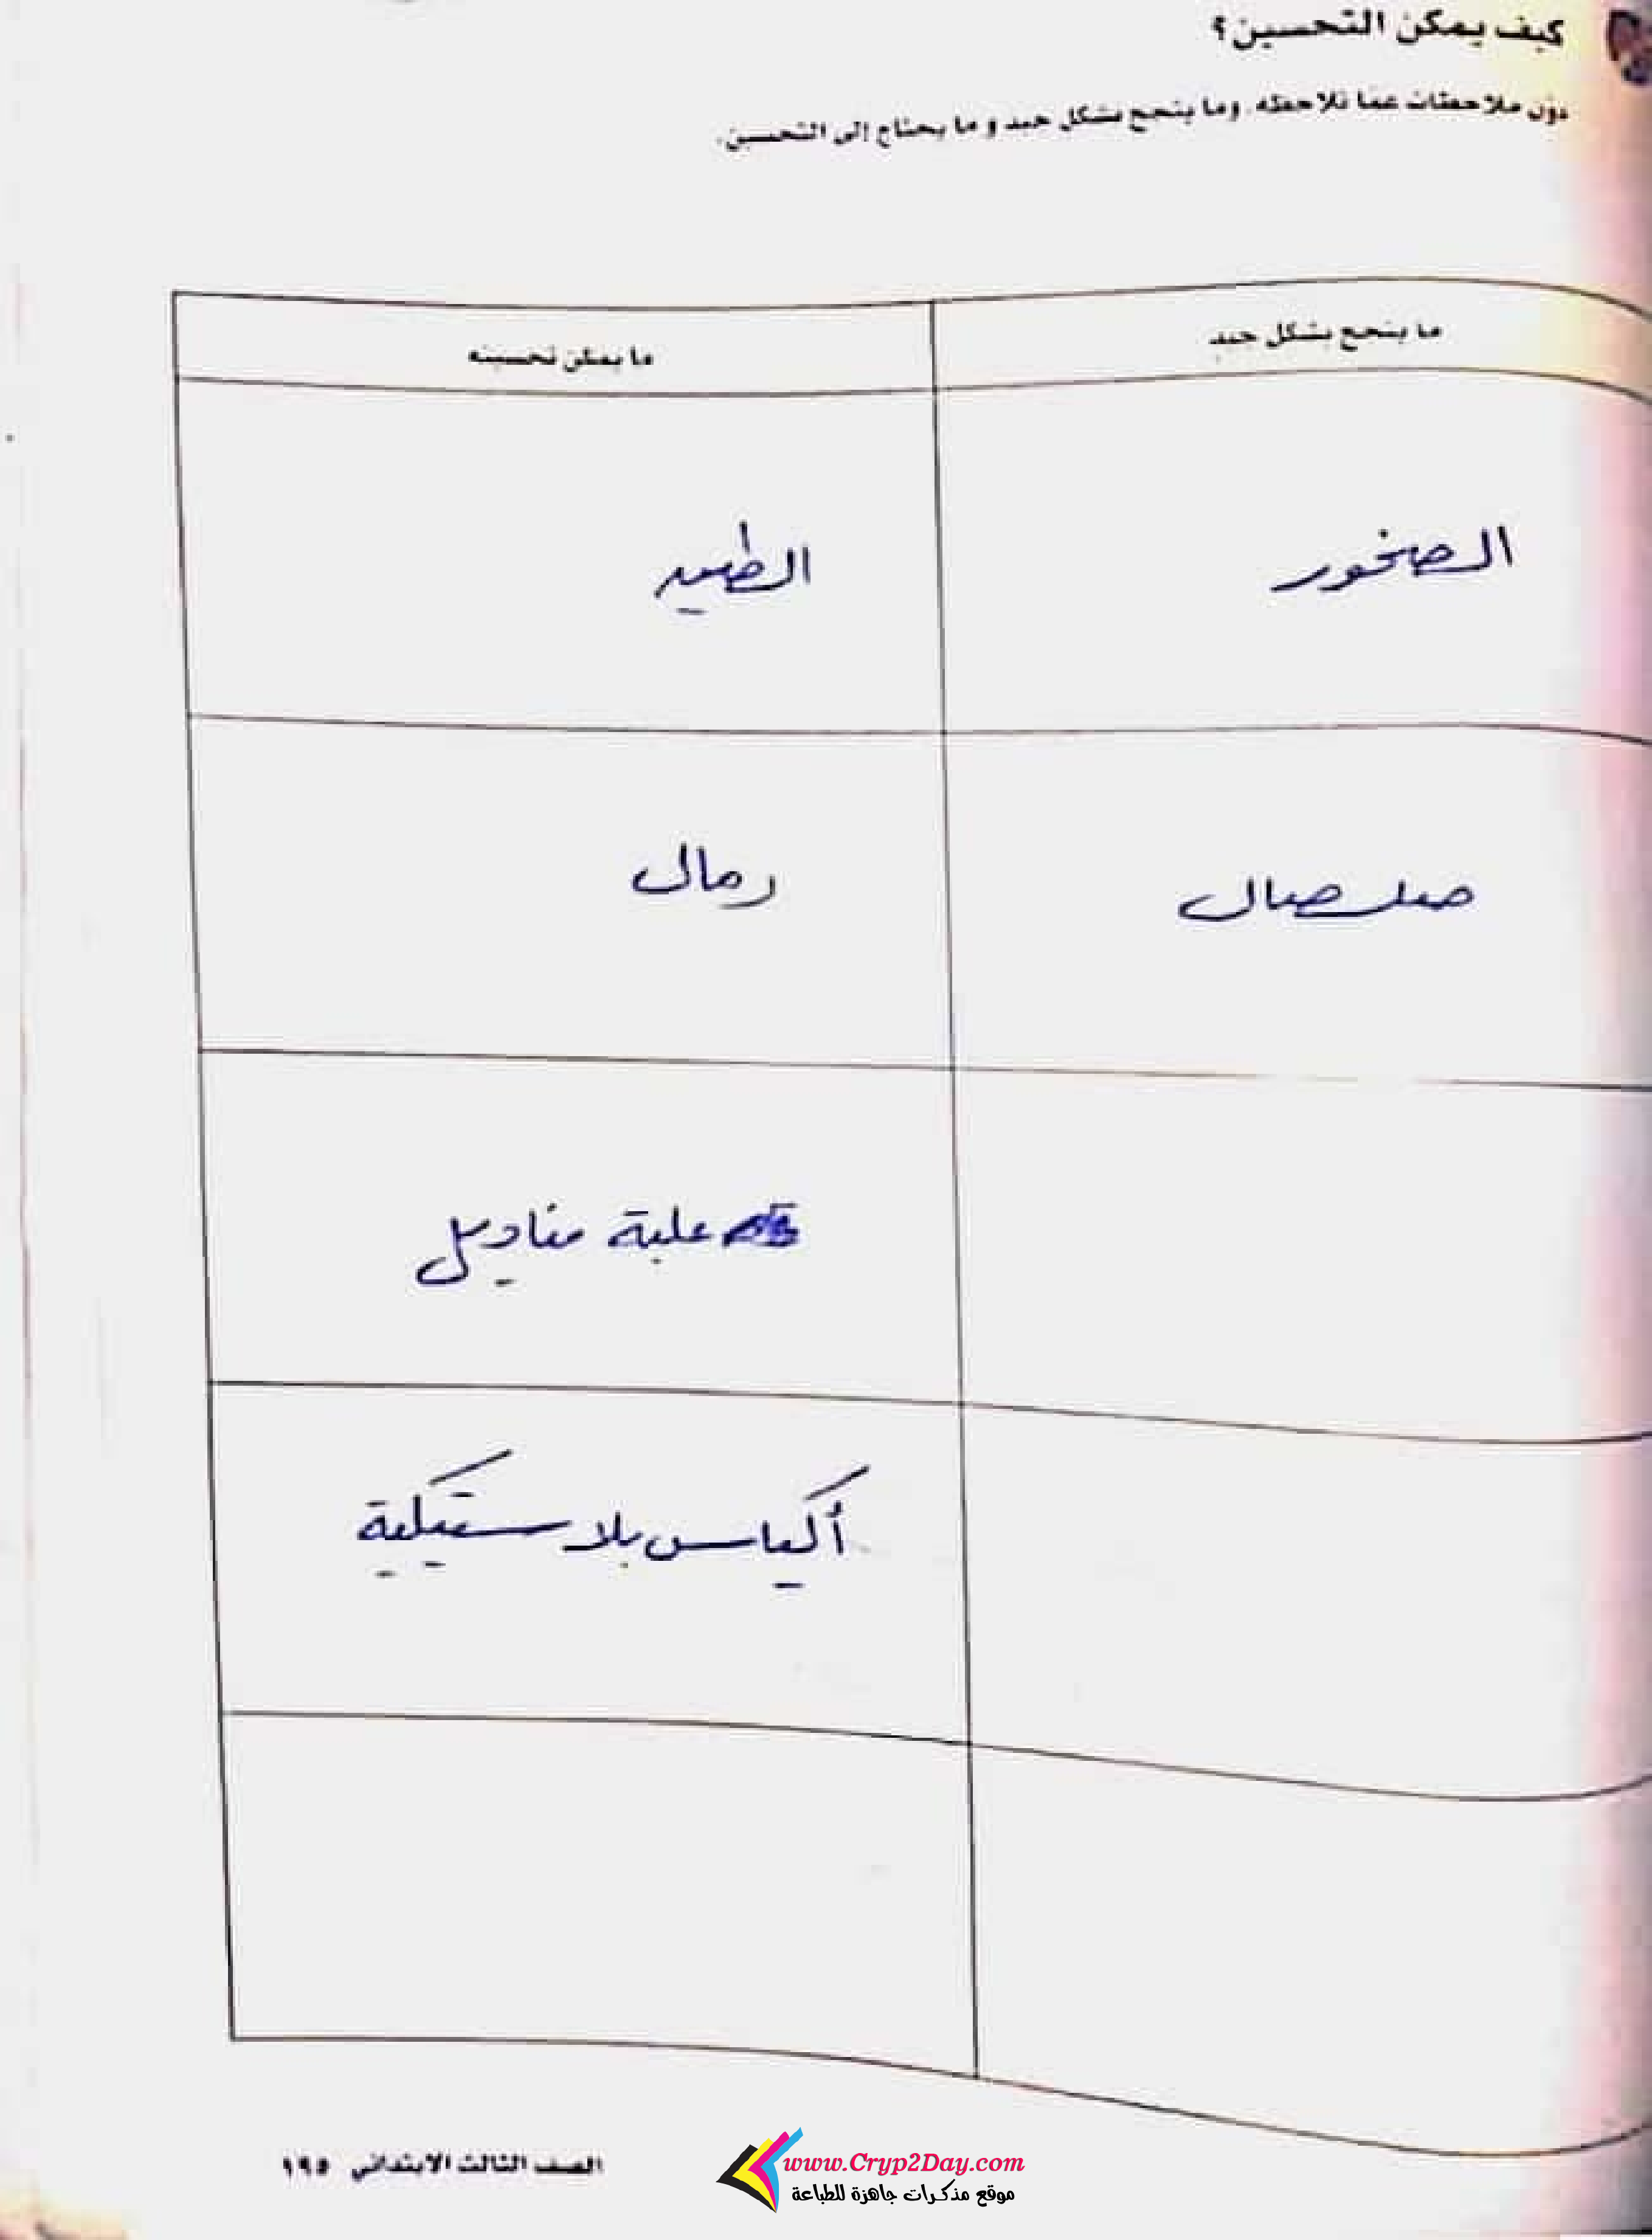 كيف يمكن التحسين؟
دوّن ملاحظات عما تلاحظه. وما ينجح بشكل جيد و ما يحتاج إلى التحسين.
ما ينجح بشكل جيد
ما يمكن تحسينه
الصخور
الطين
صلصال
رمال
علبة مناديل
أكياس بلاستيكية
الصف الثالث الابتدائي ١٩٥
www.Cryp2Day.com
موقع مذكرات جاهزة للطباعة